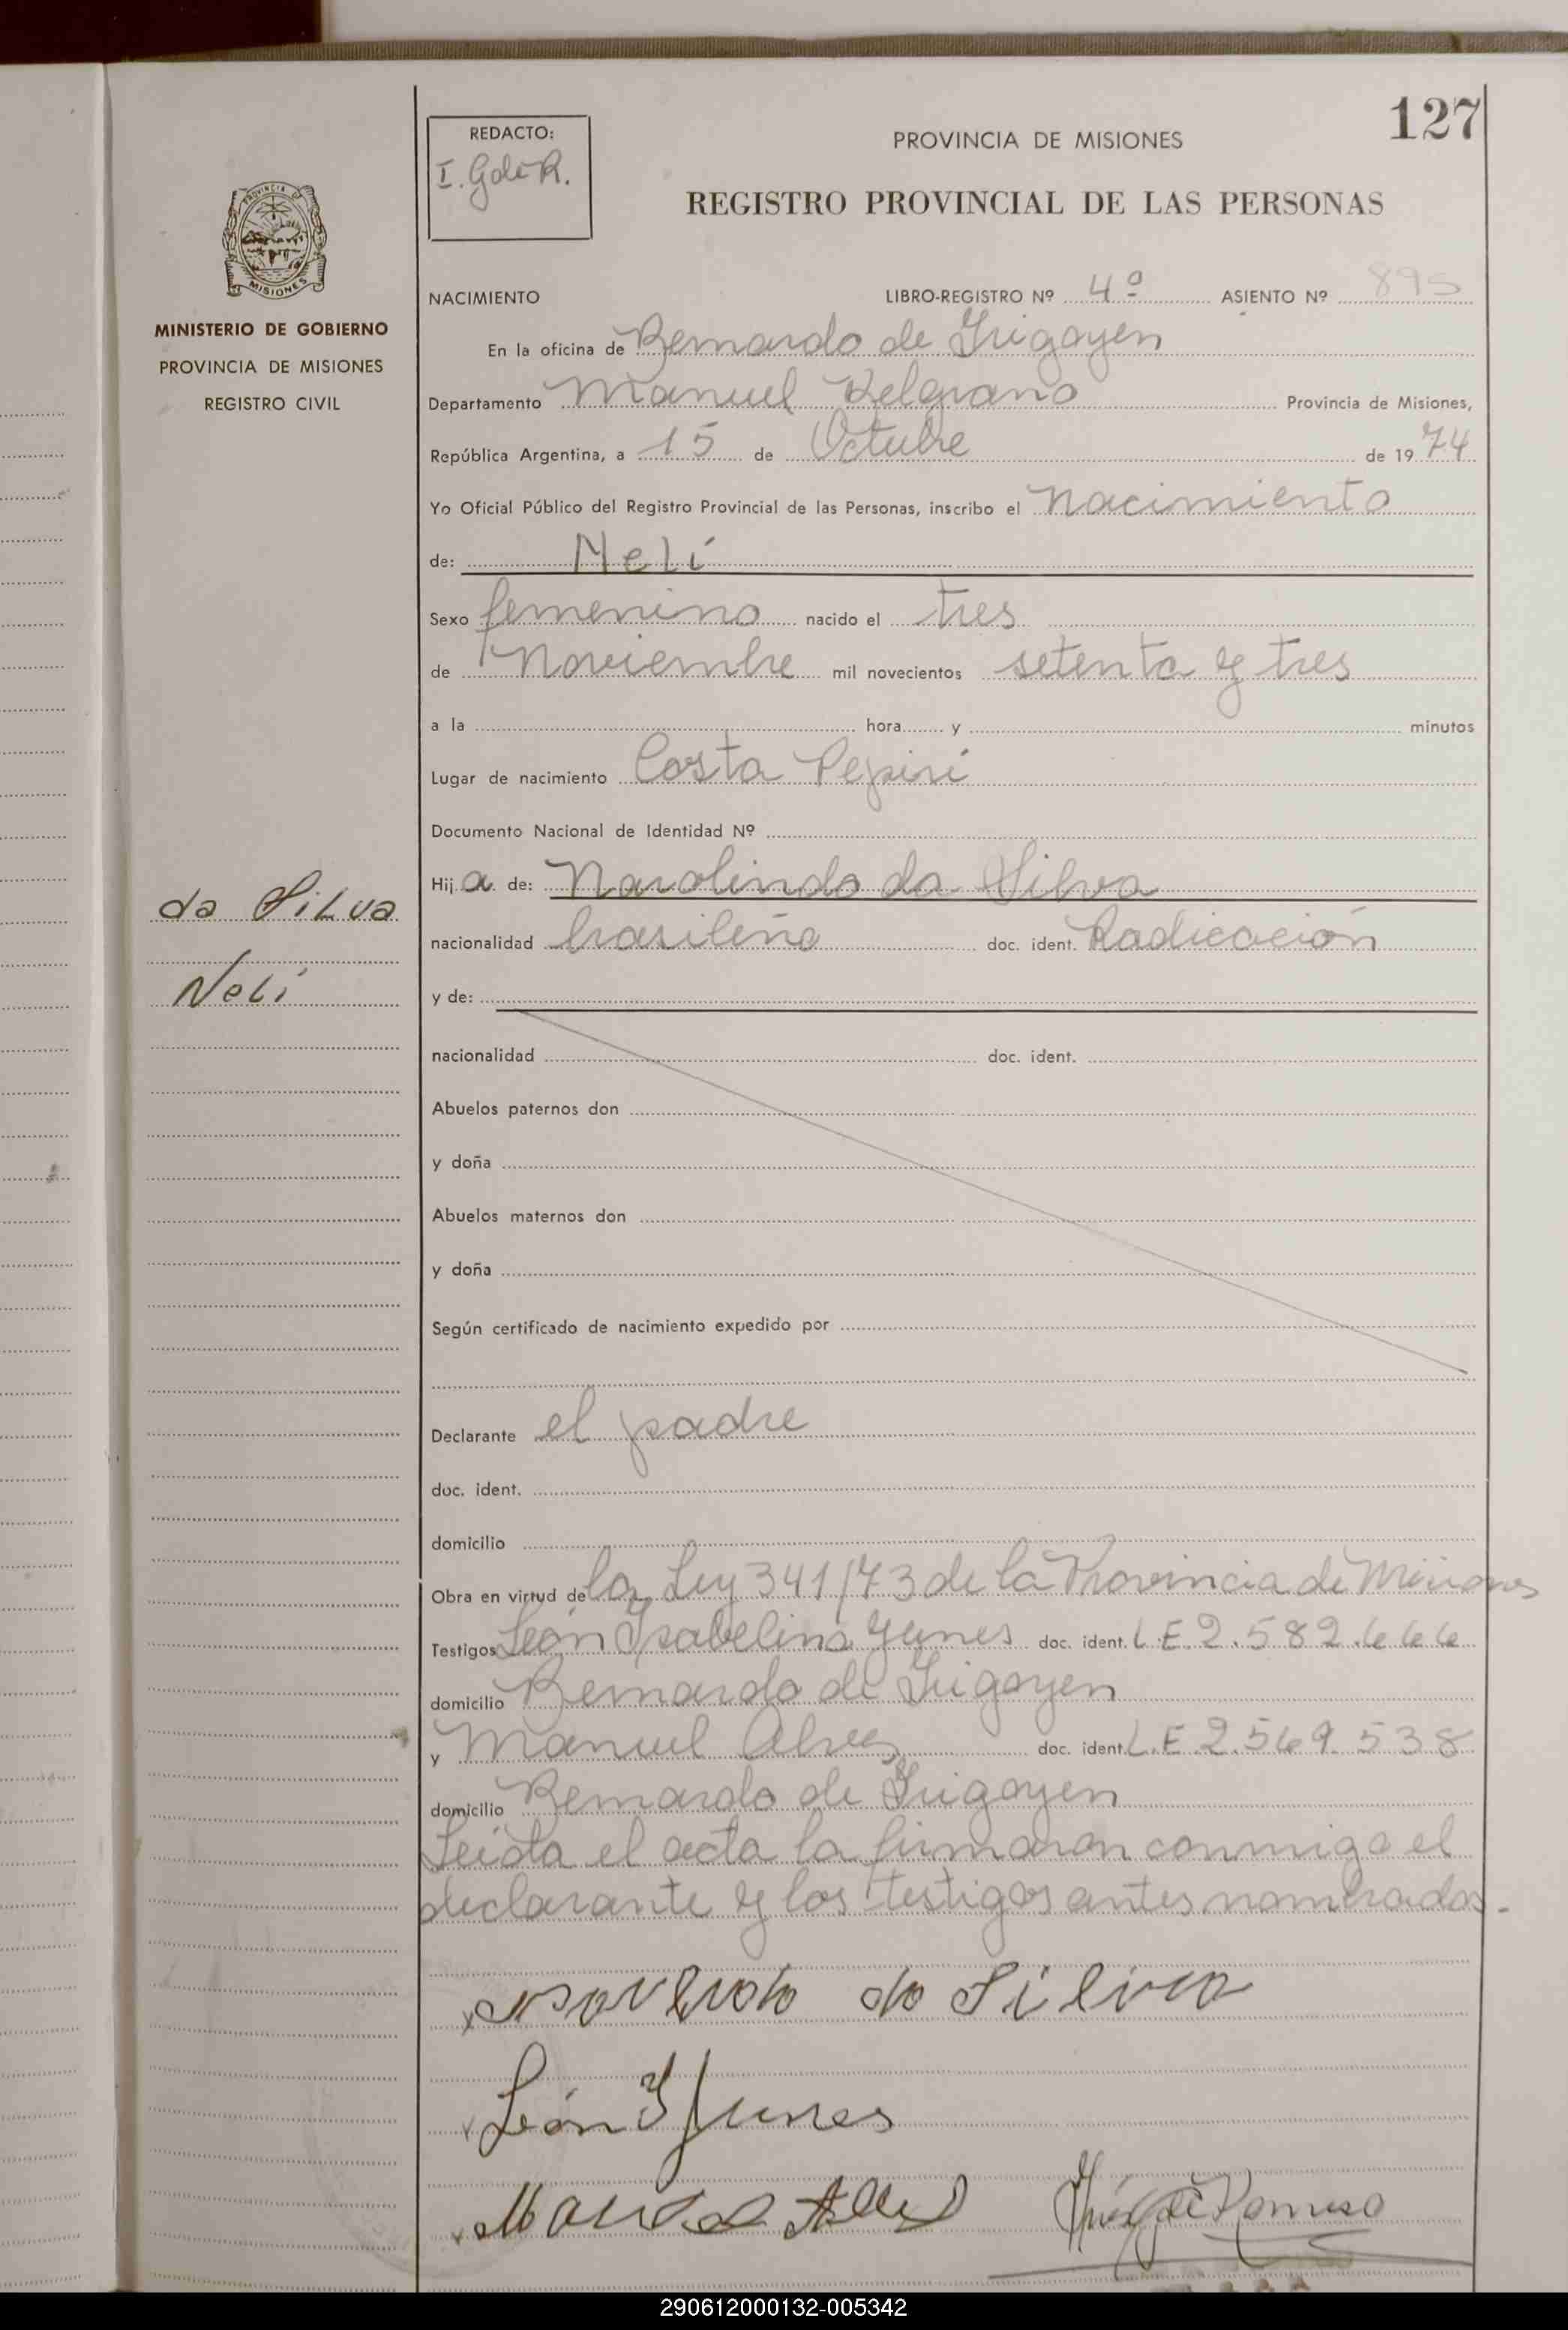 127
REDACTO:
I. G de R.
PROVINCIA DE MISIONES
REGISTRO PROVINCIAL DE LAS PERSONAS
PROVINCIA DE
MISIONES
MINISTERIO DE GOBIERNO
PROVINCIA DE MISIONES
REGISTRO CIVIL
NACIMIENTO LIBRO-REGISTRO Nº 4º ASIENTO Nº 895
En la oficina de Bernardo de Irigoyen
Departamento Manuel Belgrano Provincia de Misiones,
República Argentina, a 15 de Octubre de 1974
Yo Oficial Público del Registro Provincial de las Personas, inscribo el nacimiento
de: Nelí
Sexo femenino nacido el tres
de Noviembre mil novecientos setenta y tres
a la hora y minutos
Lugar de nacimiento Costa Pepirí
Documento Nacional de Identidad Nº
Hija de: Narolindo da Silva
da Silva
nacionalidad brasileño doc. ident. Radicación
Nelí
y de:
nacionalidad doc. ident.
Abuelos paternos don
y doña
Abuelos maternos don
y doña
Según certificado de nacimiento expedido por
Declarante el padre
doc. ident.
domicilio
Obra en virtud de la Ley 341/73 de la Provincia de Misiones
Testigos León Isabelino Yunes doc. ident. L.E 2.582.666
domicilio Bernardo de Irigoyen
y Manuel Alvez doc. ident. L.E 2.569.538
domicilio Bernardo de Irigoyen
Leida el acta la firmaron conmigo el
declarante y los testigos antes nombrados.-
da Silva
León Y Yunes
290612000132-005342